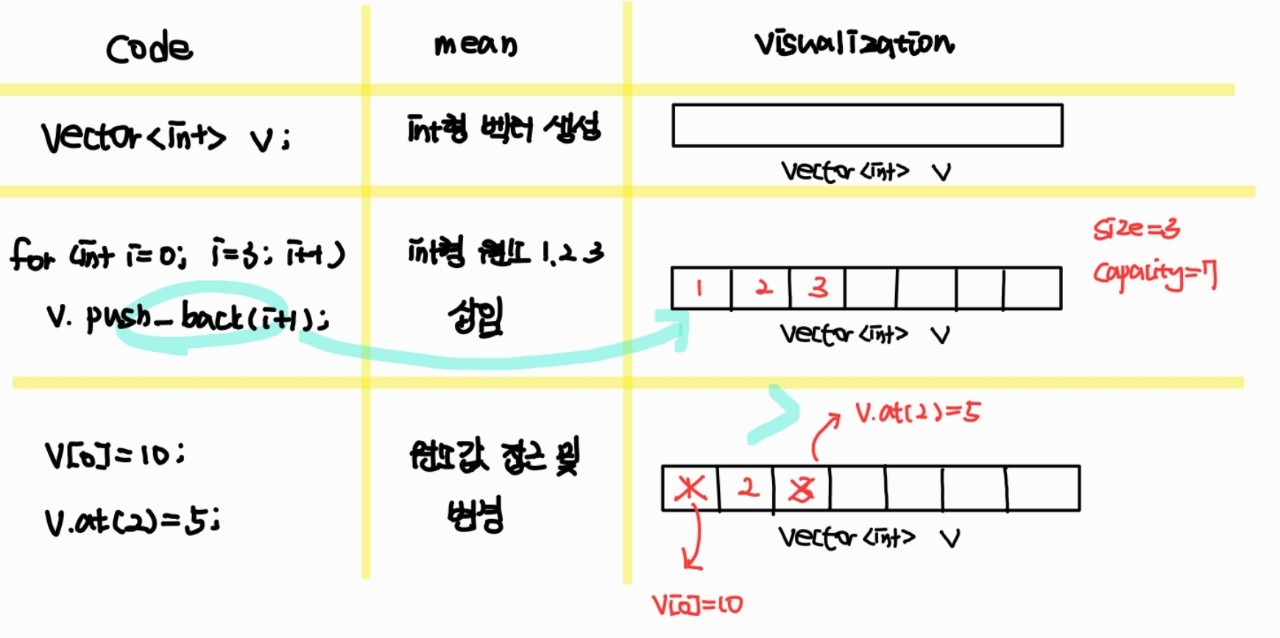 Code
mean
Visualization
Vector<int> v;
int형 벡터 생성
Vector<int> v
for (int i=0; i=3; i++)
v. push_back(i+1);
int형 원소 1,2,3
삽입
1 2 3
Size=3
Capacity=7
Vector<int> v
V[0]=10;
V.at(2)=5;
원소값 접근 및
변경
V.at(2)=5
1 2 3
Vector<int> v
V[0]=10